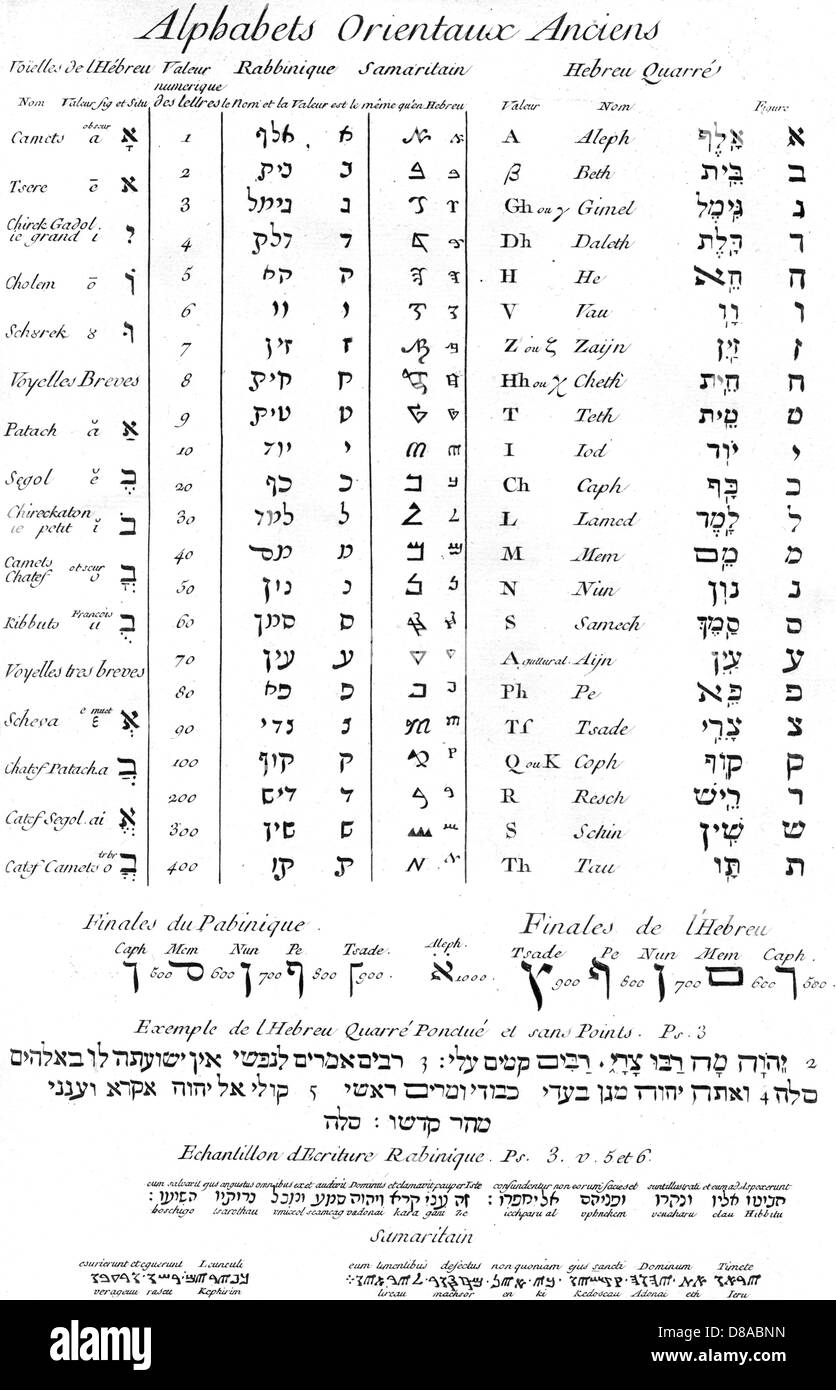 Alphabets Orientaux Anciens
Voielles de l'Hébreu Valeur numerique des lettres Rabbinique Samaritain Hebreu Quarré
Nom Valeur fig et Situ le Nom et la Valeur est le même qu'en Hebreu Valeur Nom Figure
Camets obscur a אָ 1 אלף א A Aleph אָלֶף א
Tsere ē א 2 בית ב β Beth בֵּית ב
Chirek Gadol ie grand i 3 גימל ג Gh ou γ Gimel גִּימֶל ג
4 דלת ד Dh Daleth דָּלֶת ד
Cholem ō 5 הא ה H He הֵא ה
6 וו ו V Vau וָו ו
Schurek 8 7 זין ז Z ou ζ Zaijn זַיִן ז
Voyelles Breves 8 חית ח Hh ou χ Cheth חֵית ח
Patach ă אַ 9 טית ט T Teth טֵית ט
10 יוד י I Iod יוֹד י
Segol ĕ בֶ 20 כף כ Ch Caph כַּף כ
Chireckaton ie petit ĭ בִ 30 למד ל L Lamed לָמֶד ל
Camets Chatef obscur o 40 מם מ M Mem מֵם מ
50 נון נ N Nun נוּן נ
Kibbuts François u בֻ 60 סמך ס S Samech סָמֶךְ ס
Voyelles tres breves 70 עין ע A guttural Aijn עַיִן ע
80 פא פ Ph Pe פֵּא פ
Scheva e muet אְ 90 צדי צ Tſ Tsade צָדִי צ
Chatef Patach.a בֲ 100 קוף ק Q ou K Coph קוֹף ק
200 ריש ר R Resch רֵישׁ ר
Catef Segol.ai אֱ 300 שין ש S Schin שִׁין ש
Catef Camets o trbr בֳ 400 תו ת Th Tau תָּו ת
Finales du Rabinique. Finales de l'Hebreu
Caph Mem Nun Pe Tsade. Aleph. Tsade Pe Nun Mem Caph.
ך 500 ם 600 ן 700 ף 800 ץ 900. א 1000. ץ 900 ף 800 ן 700 ם 600 ך 500.
Exemple de l'Hebreu Quarré Ponctué et sans Points. Ps. 3
2 יְהוָֹה מָה רַבּוּ צָרָי, רַבִּים קמים עלי: 3 רבים אמרים לנפשי אין ישועתה לו באלהים
סלה 4 ואתה יהוה מגן בעדי כבודי ומרים ראשי 5 קולי אל יהוה אקרא ויענני
מהר קדשו: סלה
Echantillon d'Ecriture Rabinique. Ps. 3. v. 5 et 6.
eum salvavit ejus angustus omnibus ex et audivit Dominus et clamavit pauper Iste confundentur non eorum facies et sunt illustrati et eum ad aspexerunt
הביטו אליו ונהרו ופניהם אל יחפרו: זה עני קרא ויהוה שמע ומכל צרותיו הושיעו:
boschigo tsarothau vmiccol scamcag vadonai kara gani Ze iecchparu al vphnehem venaharu elau Hibbitu
Samaritain
esurierunt et eguerunt Leunculi eum timentibus defectus non quoniam ejus sancti Dominum Timete
verageuu raseu Kephirim lireau machsor en ki Kedoscau Adonai eth Ieru
alamy
Image ID: D8ABNN
www.alamy.com